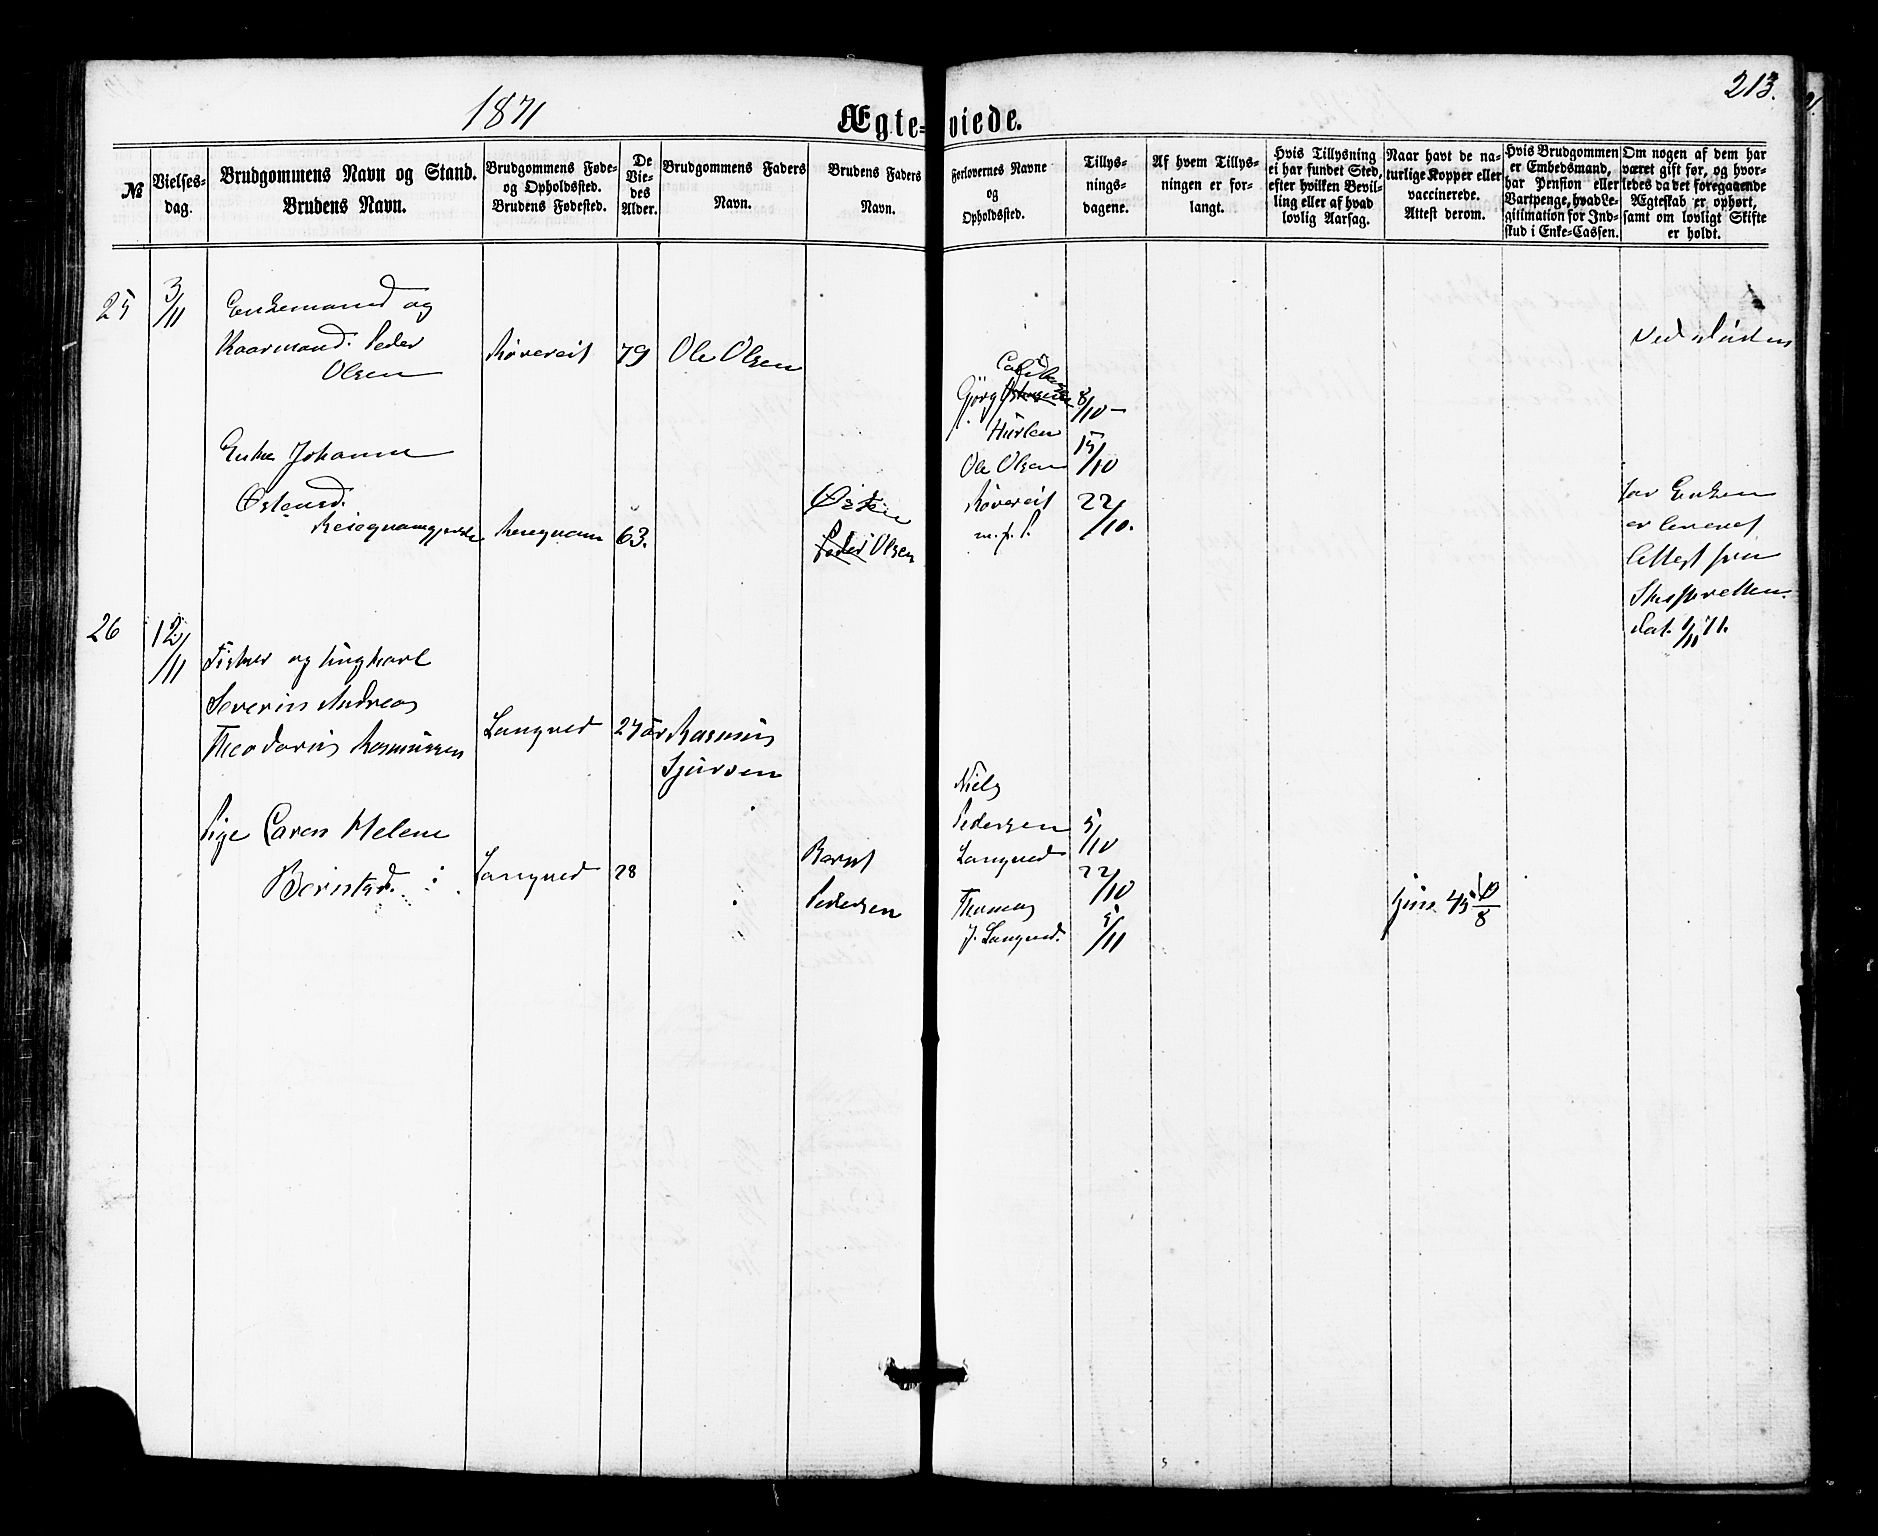 1871
213.
Ægte-viede.
№
Vielses-
dag.
Brudgommens Navn og Stand.
Brudens Navn.
Brudgommens Føde-
og Opholdssted.
Brudens Fødested.
De
Vie-
des
Alder.
Brudgommens Faders
Navn.
Brudens Faders
Navn.
Forlovernes Navne
og
Opholdssted.
Tillys-
nings-
dagene.
Af hvem Tillys-
ningen er for-
langt.
Hvis Tillysning
ei har fundet Sted,
efter hvilken Bevil-
ling eller af hvad
lovlig Aarsag.
Naar havt de na-
turlige Kopper eller
vaccinerede.
Attest derom.
Hvis Brudgommen
er Embedsmand,
har Pension eller
Vartpenge, hvad Le-
gitimation for Ind-
skud i Enke-Cassen.
Om nogen af dem har
været gift før, og hvor-
ledes da det foregaaende
Ægteskab er ophørt,
samt om lovligt Skifte
er holdt.
25
3/11
Enkemand og
Kaarmand. Peder
Olsen
79
Ole Olsen
Ved Døden
Gjørg
8/10 -
Hurlen
Enke Johanne
15/10
Ole Olsen
Østensd.
63.
Østen
Peder Olsen
m. f. P.
22/10.
for Enken
er leveret
Attest fra
Skifteretten
Dat. 1/11 71.
26
12/11
Fisker og Ungkarl
Severin Andreas
Theodorius Rasmussen
Langved
24 år
Rasmus
Sjursen
Pige Caren Helene
Berntsd.
Langved
28
Bernt
Pedersen
Niels
Pedersen
Langved
Thomas
J. Langved.
5/10
22/10
5/11